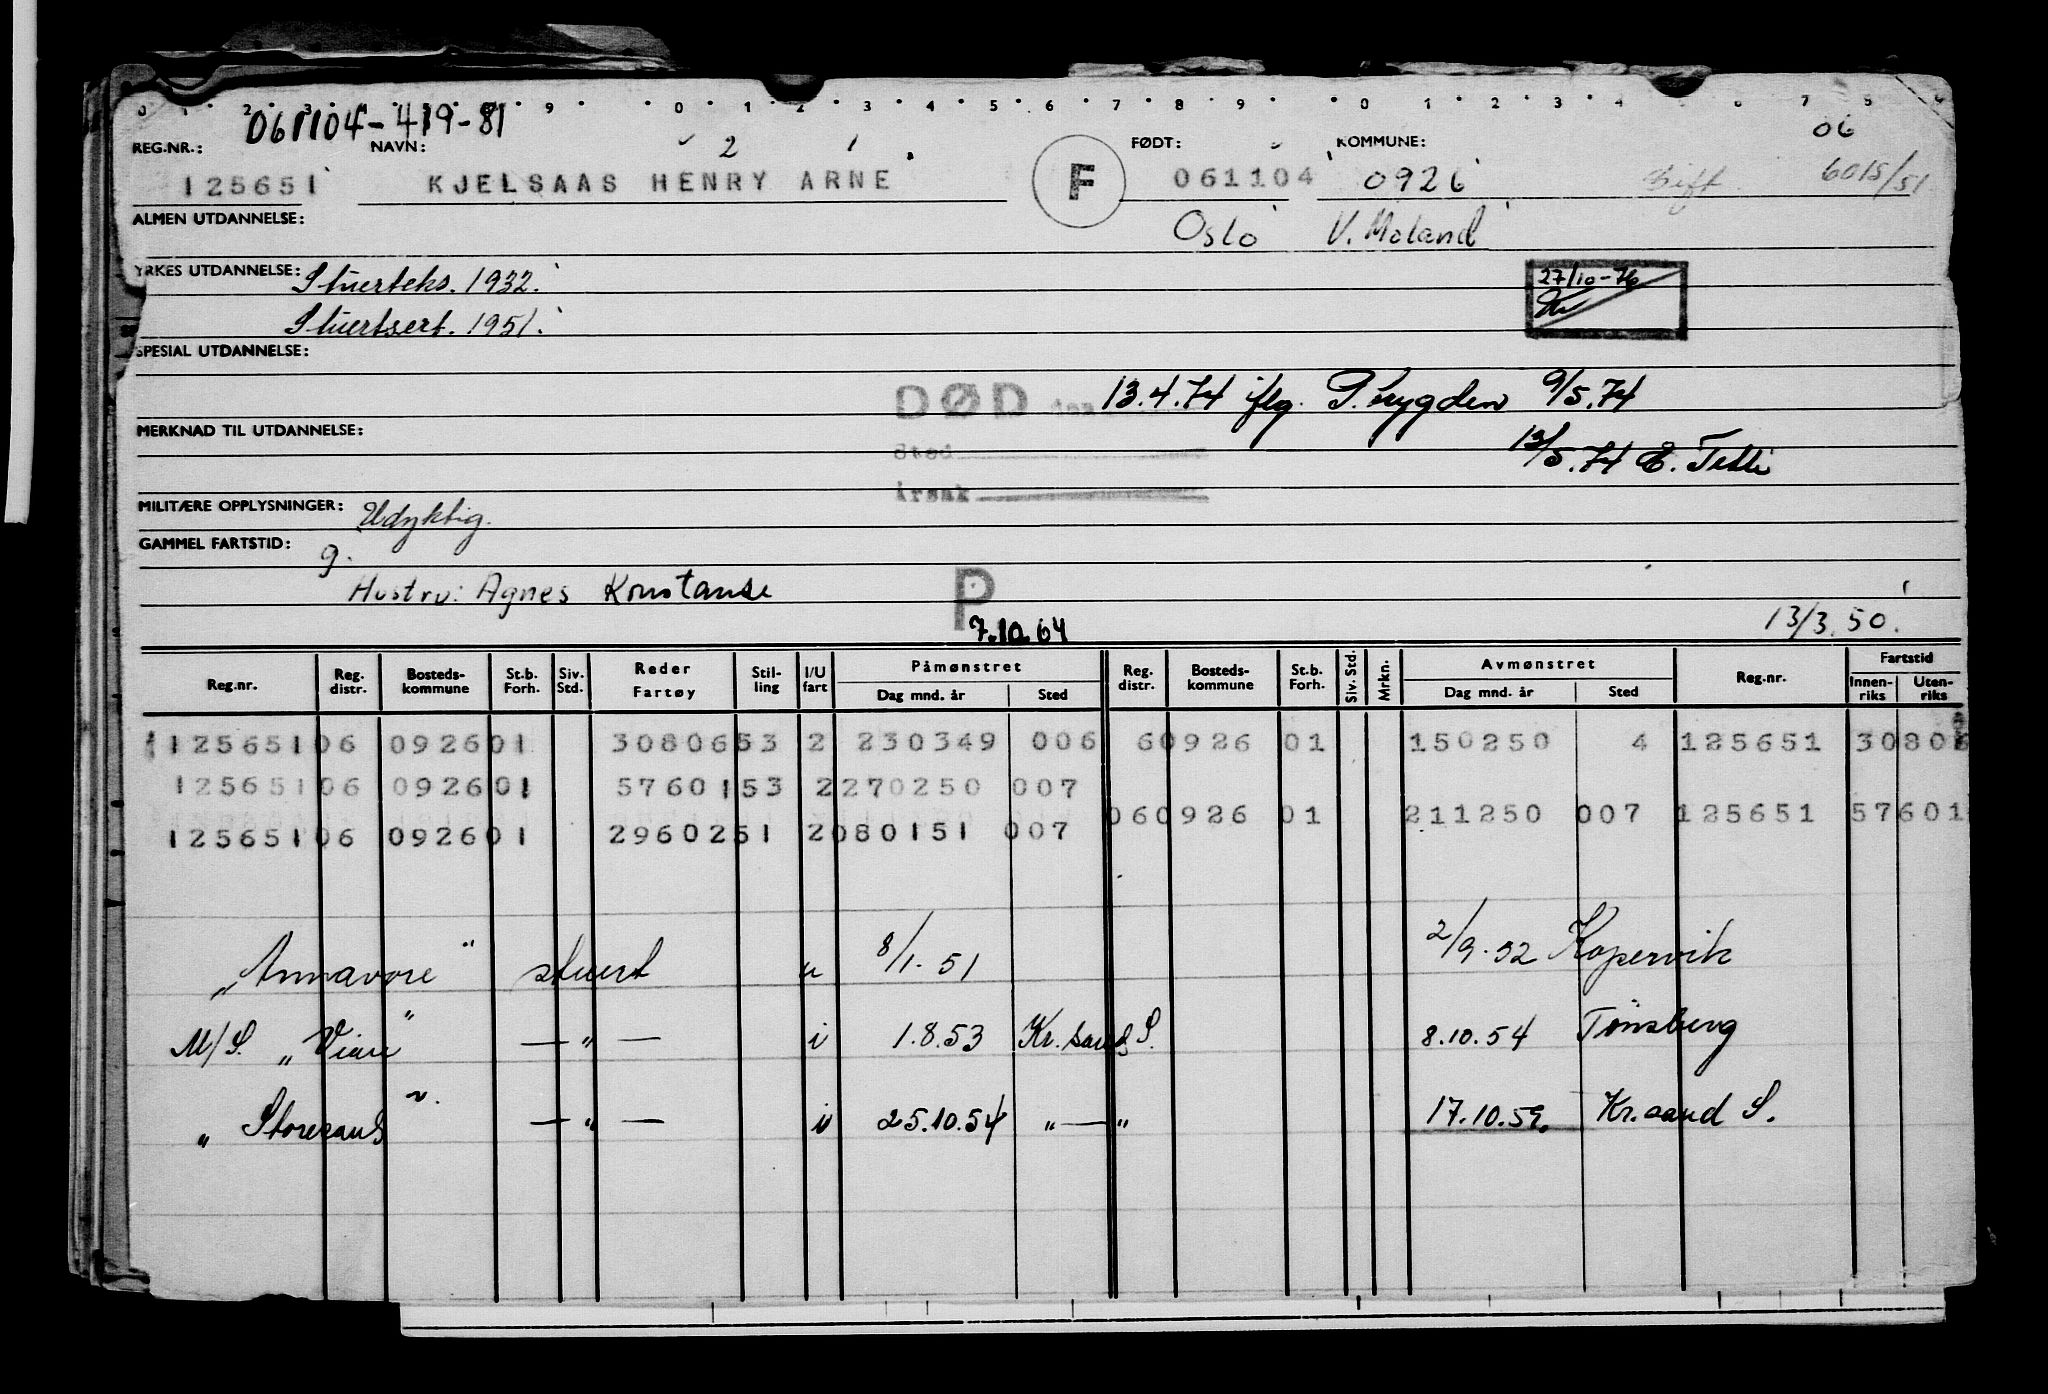 061104-419-81
06
REG.NR.: NAVN: 2 1 FØDT: KOMMUNE:
125651 KJELSAAS HENRY ARNE F 061104 0926 Gift 6015/51
ALMEN UTDANNELSE: Oslo V. Moland
YRKES UTDANNELSE: Stuerteks. 1932. 27/10-76
Stuertsert. 1951.
SPESIAL UTDANNELSE:
DØD den 13.4.74 iflg. P. trygden 9/5.74
MERKNAD TIL UTDANNELSE:
Sted 13/5.74 E.
Årsak
MILITÆRE OPPLYSNINGER: Udyktig.
GAMMEL FARTSTID: g.
Hustru: Agnes Konstanse P
7.10.64 13/3.50.
Reg.nr. Reg. distr. Bosteds-kommune St.b. Forh. Siv. Std. Reder Fartøy Stil-ling I/U fart Påmønstret Dag mnd. år Sted Reg. distr. Bosteds-kommune St.b. Forh. Siv. Std. Mrkn. Avmønstret Dag mnd. år Sted Reg.nr. Fartstid Innen-riks Uten-riks
125651 06 0926 01 30806 53 2 230349 006 6 0926 01 150250 4 125651 30806
125651 06 0926 01 57601 53 2 270250 007
060926 01 211250 007 125651 57601
125651 06 0926 01 29602 51 2 080151 007
"Annavore" stuert u 8/1.51 2/9.52 Kopervik
M/S. "Viau" — " — i 1.8.53 Kr.sand S. 8.10.54 Tønsberg
" Storesand" — " — i 25.10.54 " — " 17.10.59. Kr.sand S.